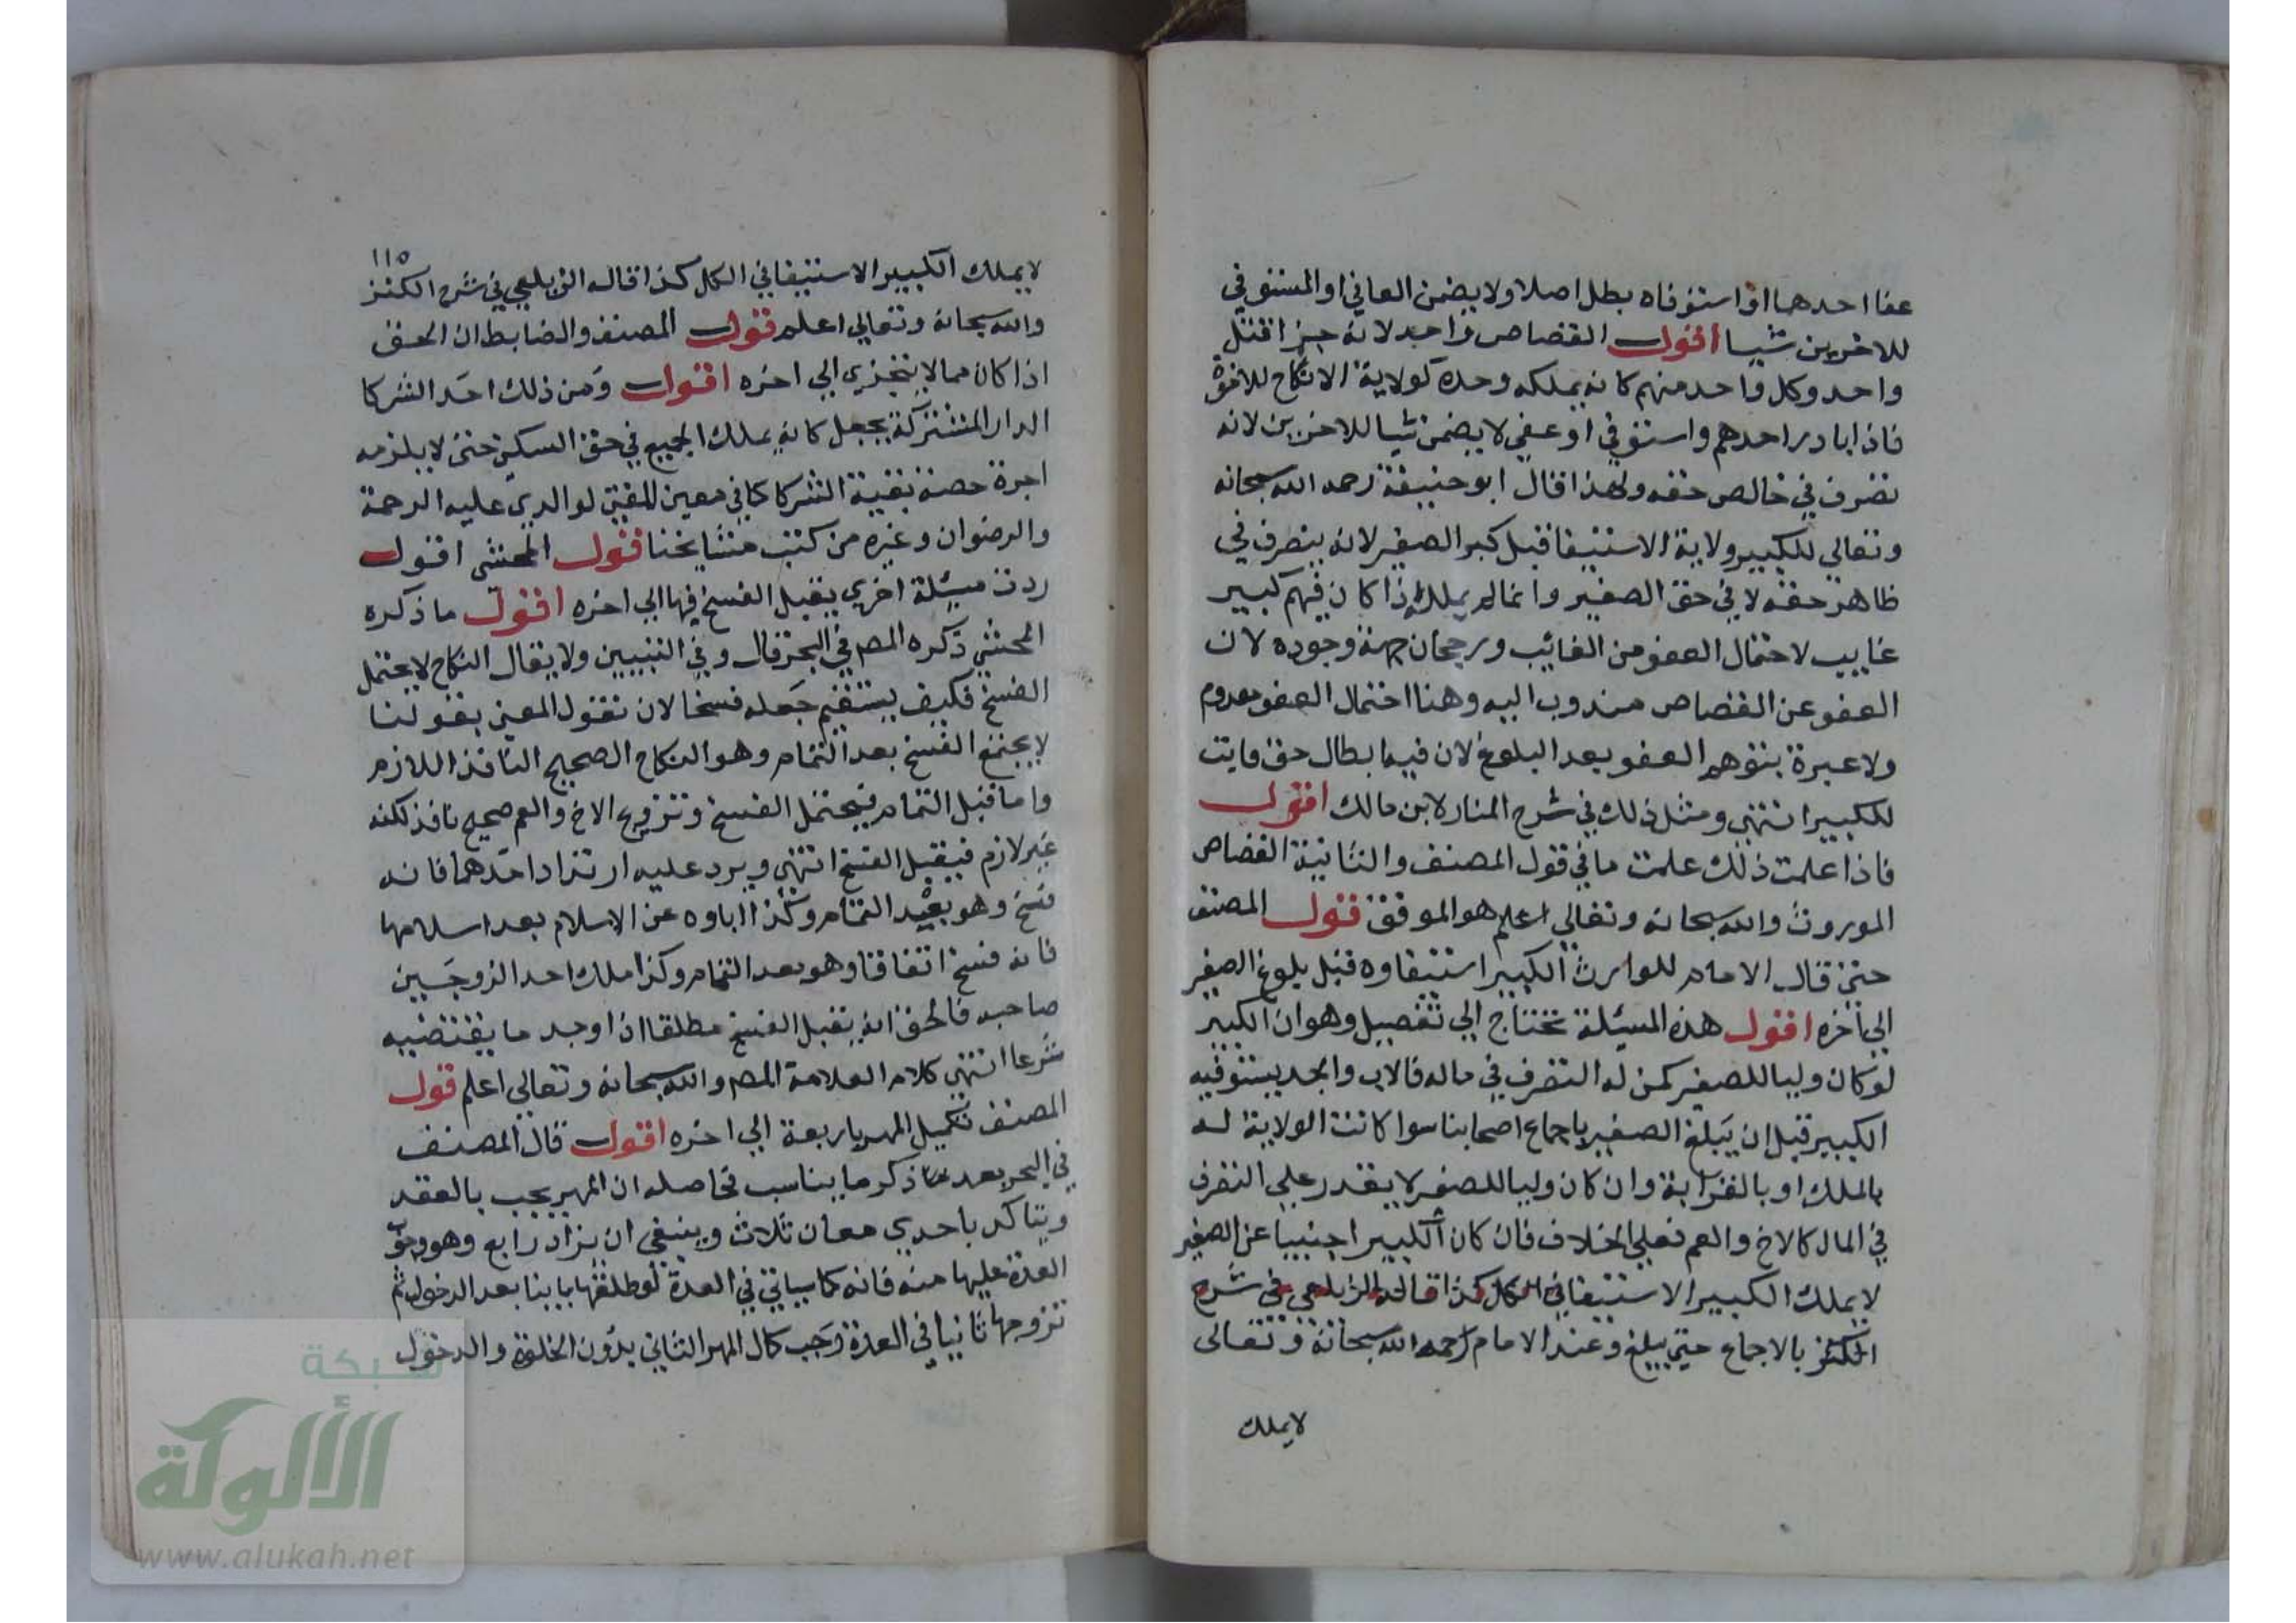 عفا احدهما او استوفاه بطل اصلا ولا يضمن العافي او المستوفي
للاخرين شيا اقول القصاص واحد لانه جزا قتل
واحد وكل واحد منهم كانه يملكه وحده كولاية الانكاح للاخوة
فاذا بادر احدهم واستوفي او عفي لا يضمن شيا للاخرين لانه
تصرف في خالص حقه ولهذا قال ابو حنيفة رحمه الله سبحانه
وتعالي للكبير ولاية الاستيفا قبل كبر الصغير لانه يتصرف في
ظاهر حقه لا في حق الصغير وانما لم يملك اذا كان فيهم كبير
غايب لاحتمال العفو من الغائب ورجحان جهة وجوده لان
العفو عن القصاص مندوب اليه وهنا احتمال العفو معدوم
ولا عبرة بتوهم العفو بعد البلوغ لان فيه ابطال حق ثابت
للكبير انتهي ومثل ذلك في شرح المنار لابن مالك اقول
فاذا علمت ذلك علمت ما في قول المصنف والثانية القصاص
الموروث والله سبحانه وتعالي اعلم هو الموفق قول المصنف
حتي قال الامام للوارث الكبير استيفاوه قبل بلوغ الصغير
الي اخره اقول هذه المسئلة تحتاج الي تفصيل وهو ان الكبير
لو كان وليا للصغير كمن له التصرف في ماله فالاب والجد يستوفيه
الكبير قبل ان يبلغ الصغير باجماع اصحابنا سوا كانت الولاية له
بالملك او بالقرابة وان كان وليا للصغير لا يقدر علي التصرف
في المال كالاخ والعم فعلي الخلاف فان كان الكبير اجنبيا عن الصغير
لا يملك الكبير الاستيفا في الكل كذا قاله الزيلعي في شرح
الكنز بالاجماع حتي يبلغ وعند الامام رحمه الله سبحانه وتعالى
لا يملك
١١٥
لا يملك الكبير الاستيفا في الكل كذا قاله الزيلعي في شرح الكنز
والله سبحانه وتعالي اعلم قول المصنف والضابط ان الحق
اذا كان مما لا يتجزي الي اخره اقول ومن ذلك احد الشركا
الدار المشتركة يجعل كانه يملك الجميع في حق السكني حتي لا يلزمه
اجرة حصة بقية الشركا كما في معين المفتي لوالدي عليه الرحمة
والرضوان وغيره من كتب مشايخنا قول المحشي اقول
ردت مسئلة اخري يقبل الفسخ فيها الي اخره اقول ما ذكره
المحشي ذكره المصـ في البحر قال وفي التبيين ولا يقال النكاح لا يحتمل
الفسخ فكيف يستقيم جعله فسخا لان نقول المعني بقولنا
لا يحتمل الفسخ بعد التمام وهو النكاح الصحيح النافذ اللازم
واما قبل التمام فيحتمل الفسخ وتزويج الاخ والعم صحيح نافذ لكنه
غير لازم فيقبل الفسخ انتهي ويرد عليه ارتداد احدهما فانه
فسخ وهو بعيد التمام وكذا اباوه عن الاسلام بعد اسلامها
فانه فسخ اتفاقا وهو بعد التمام وكذا ملك احد الزوجين
صاحبه فالحق انه يقبل الفسخ مطلقا اذا وجد ما يقتضيه
شرعا انتهي كلام العلامة المصـ والله سبحانه وتعالي اعلم قول
المصنف تكميل المهر باربعة الي اخره اقول قال المصنف
في البحر بعد ما ذكر ما يناسب فحاصله ان المهر يجب بالعقد
ويتاكد باحدي معان ثلاث وينبغي ان يزاد رابع وهو وجوب
العدة عليها منه فانه كما سياتي في العدة لو طلقها باينا بعد الدخول ثم
تزوجها ثانيا في العدة وجب كمال المهر الثاني بدون الخلوة والدخول
شبكة
الألوكة
www.alukah.net